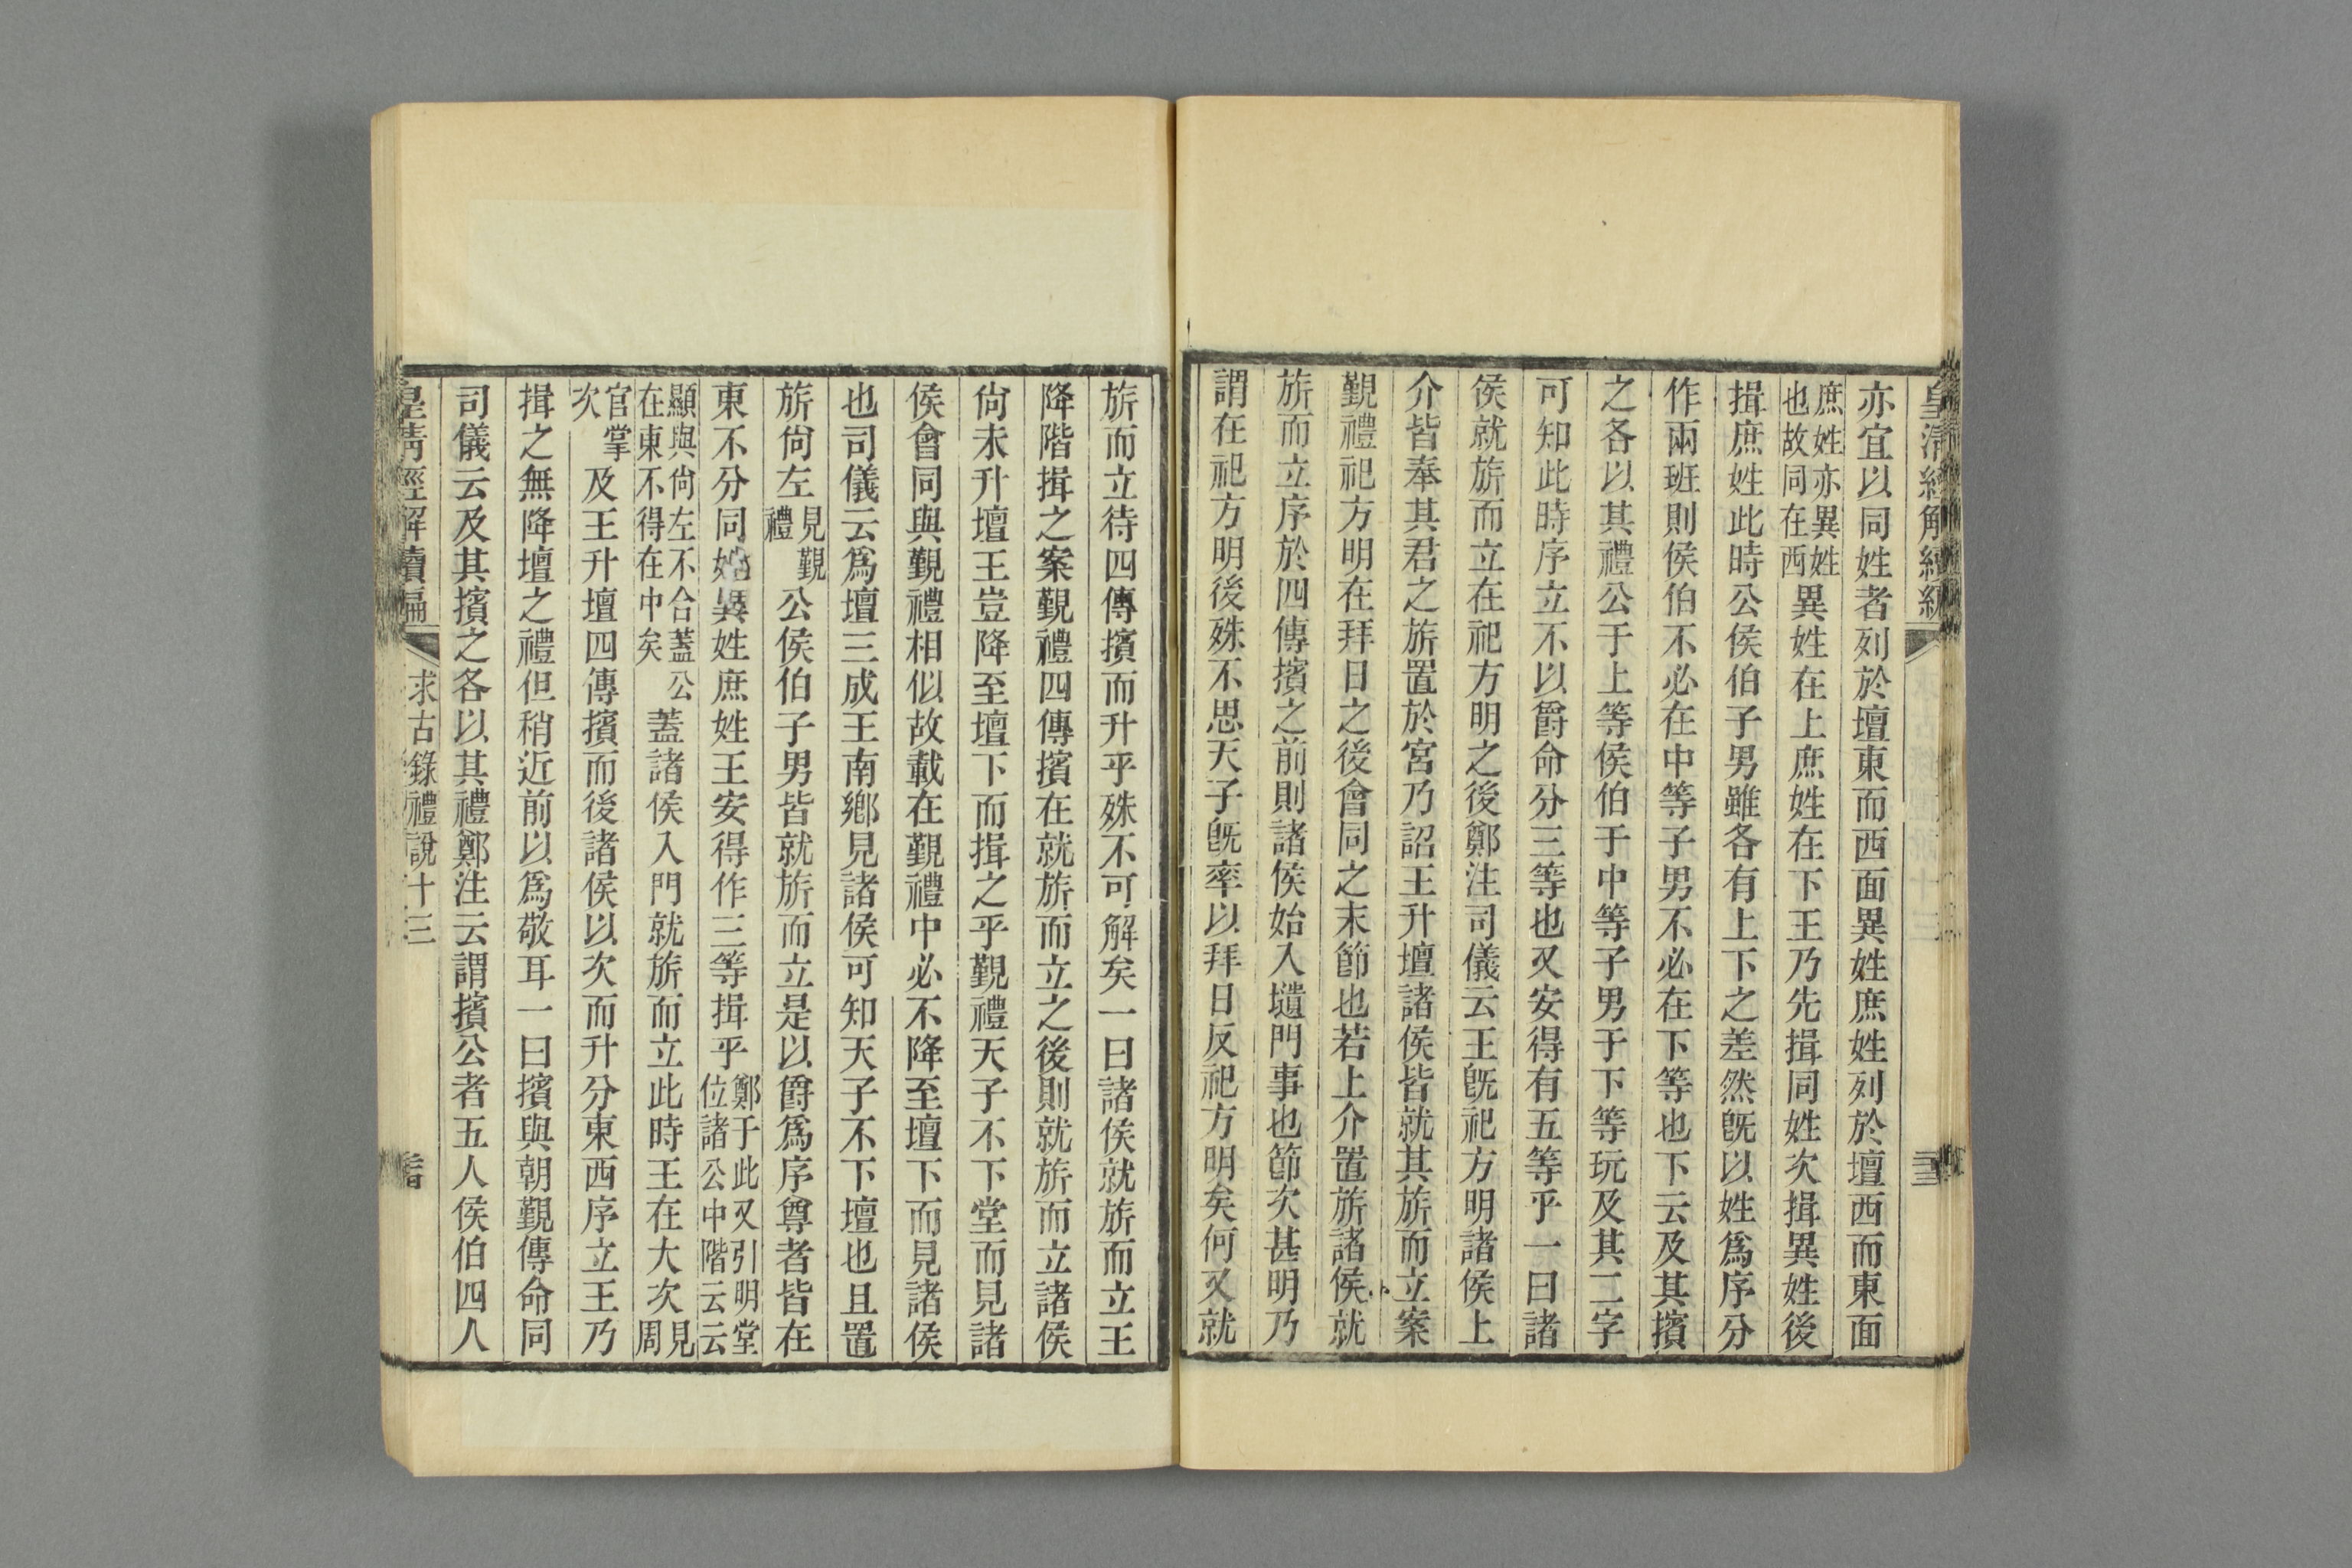 皇清經解續編
亦宜以同姓者列於壇東而西面異姓庶姓列於壇西而東面
庶姓亦異姓也故同在西異姓在上庶姓在下王乃先揖同姓次揖異姓後
揖庶姓此時公侯伯子男雖各有上下之差然旣以姓爲序分
作兩班則侯伯不必在中等子男不必在下等也下云及其擯
之各以其禮公于上等侯伯于中等子男于下等玩及其二字
可知此時序立不以爵命分三等也又安得有五等乎一曰諸
侯就旂而立在祀方明之後鄭注司儀云王旣祀方明諸侯上
介皆奉其君之旂置於宮乃詔王升壇諸侯皆就其旂而立案
覲禮祀方明在拜日之後會同之末節也若上介置旂諸侯就
旂而立序於四傳擯之前則諸侯始入壝門事也節次甚明乃
謂在祀方明後殊不思天子旣率以拜日反祀方明矣何又就
旂而立待四傳擯而升乎殊不可解矣一曰諸侯就旂而立王
降階揖之案覲禮四傳擯在就旂而立之後則就旂而立諸侯
尙未升壇王豈降至壇下而揖之乎覲禮天子不下堂而見諸
侯會同與覲禮相似故載在覲禮中必不降至壇下而見諸侯
也司儀云爲壇三成王南鄕見諸侯可知天子不下壇也且置
旂尙左見覲禮公侯伯子男皆就旂而立是以爵爲序尊者皆在
東不分同姓異姓庶姓王安得作三等揖乎鄭于此又引明堂位諸公中階云云
顯與尙左不合蓋公在東不得在中矣蓋諸侯入門就旂而立此時王在大次見周
官掌次及王升壇四傳擯而後諸侯以次而升分東西序立王乃
揖之無降壇之禮但稍近前以爲敬耳一曰擯與朝覲傳命同
司儀云及其擯之各以其禮鄭注云謂擯公者五人侯伯四人
皇淸經解續編 求古錄禮說十三